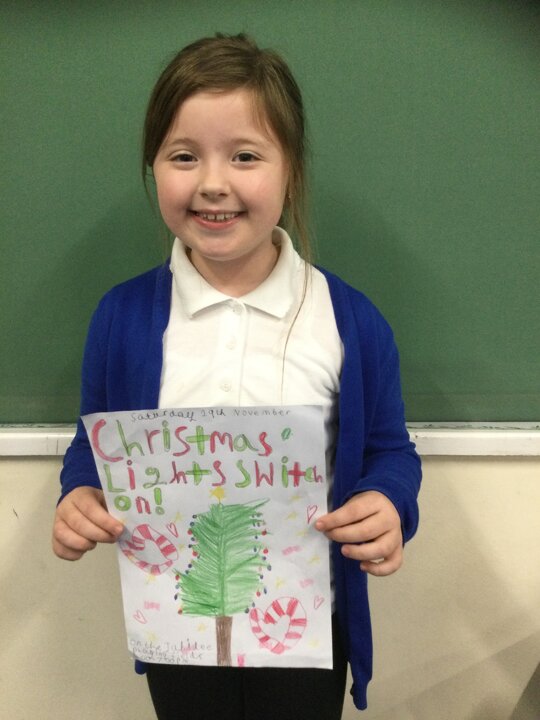 Saturday 29th November
Christmas
Lights switch
on!
on the Jubilee
playing